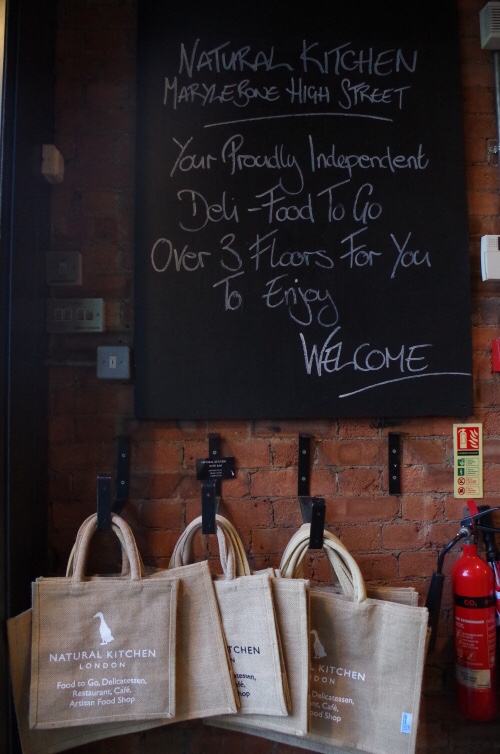 NATURAL KITCHEN
MARYLEBONE HIGH STREET
Your Proudly Independent
Deli - Food To Go
Over 3 Floors For You
To Enjoy
WELCOME
NATURAL KITCHEN
LONDON
Food to Go, Delicatessen,
Restaurant, Café,
Artisan Food Shop
CHEN
catessen,
Café,
Shop
NATURAL KITCHEN
LONDON
Delicatessen,
Café,
ood Shop
CO2